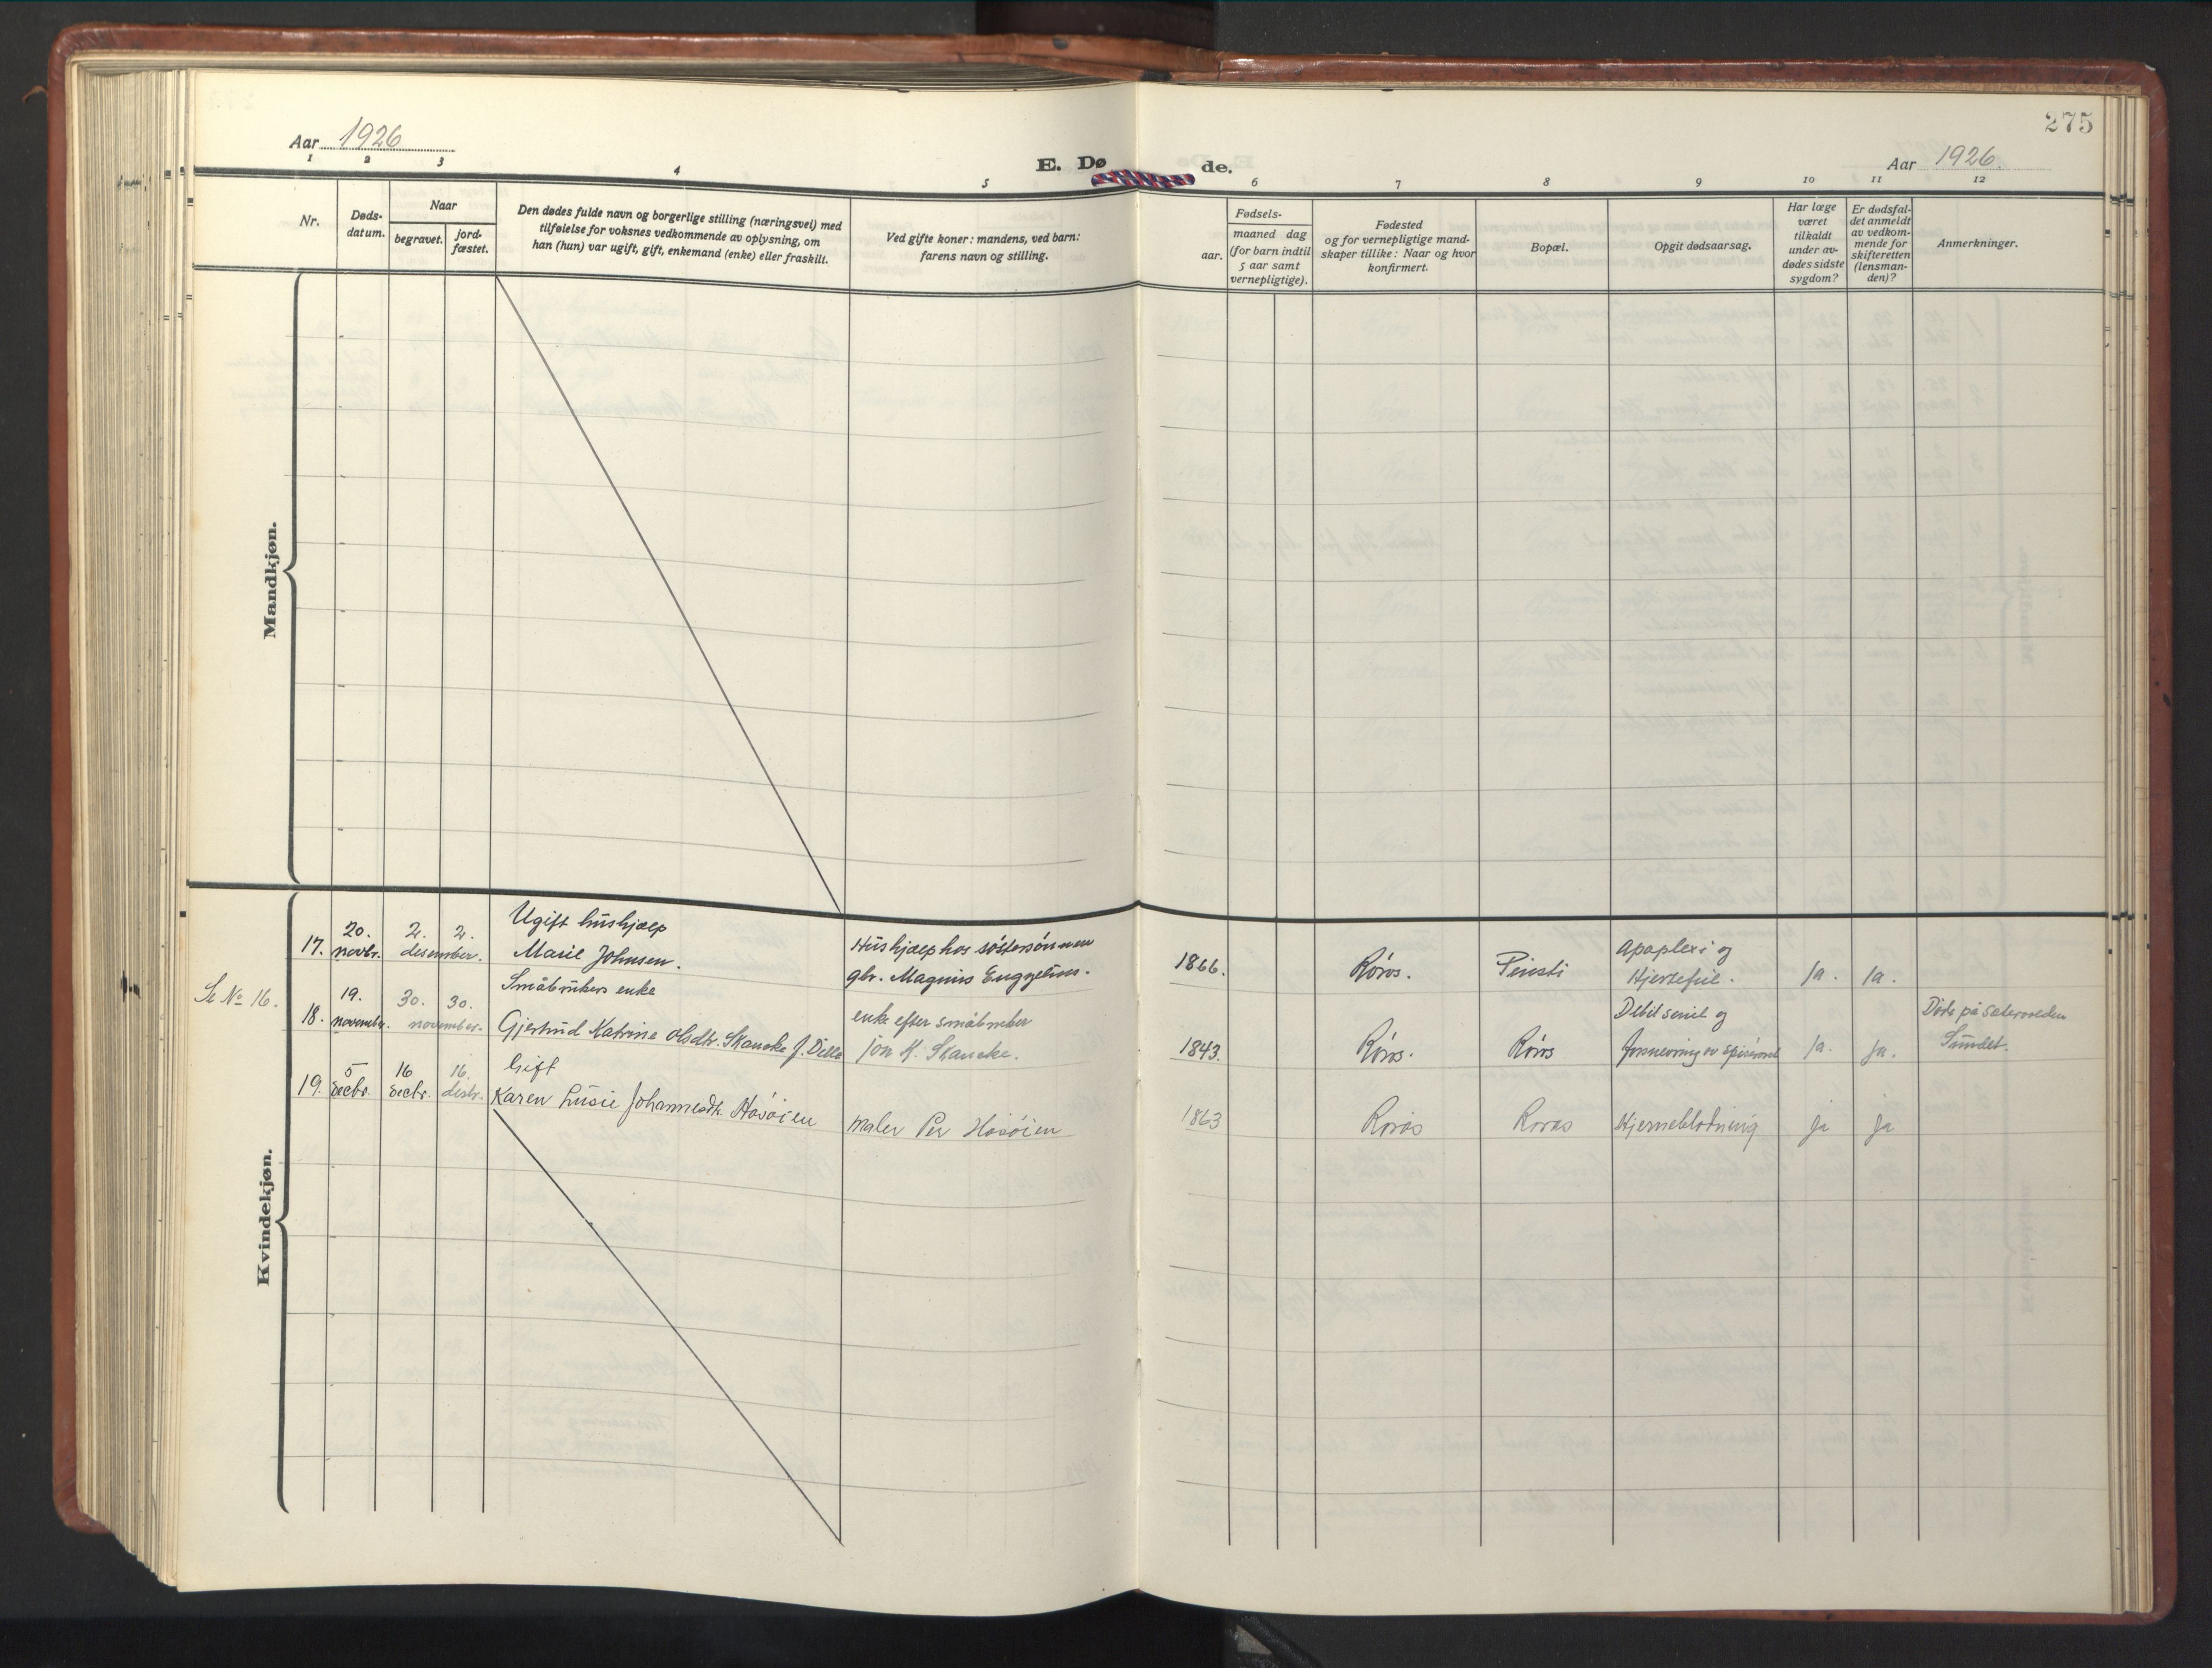 275
Aar 1926
Aar 1926.
E. Dø de.
1 2 3 4 5 6 7 8 9 10 11 12
Nr.
Døds-
datum.
Naar
begravet.
jord-
fæstet.
Den dødes fulde navn og borgerlige stilling (næringsvei) med
tilføielse for voksnes vedkommende av oplysning, om
han (hun) var ugift, gift, enkemand (enke) eller fraskilt.
Ved gifte koner: mandens, ved barn:
farens navn og stilling.
Fødsels-
aar.
maaned dag
(for barn indtil
5 aar samt
vernepligtige).
Fødested
og for vernepligtige mand-
skaper tillike: Naar og hvor
konfirmert.
Bopæl.
Opgit dødsaarsag.
Har læge
været
tilkaldt
under av-
dødes sidste
sygdom?
Er dødsfal-
det anmeldt
av vedkom-
mende for
skifteretten
(lensman-
den)?
Anmerkninger.
Mandkjøn.
Kvindekjøn.
17. 20. novbr. 2. 2. desember.
Ugift hushjælp
Marie Johnsen.
Hushjælp hos søstersønnen
gbr. Magnus Enggelius.
1866. Røros. Apoplexi og
Hjertefeil. Ja. Ja.
Se No 16.
18. 19. november. 30. 30. november.
Småbrukers enke
Gjertrud Katrine Olsdtr. Skancke f. Dille
enke efter småbruker
Jon K. Skancke.
1843. Røros. Røros
Debil senil og
forsnevring av spiserøret Ja. Ja.
Døde på sætervolden
Sundet.
19. 5 decbr. 16 decbr. 16. desbr.
Gift
Karen Lusie Johannesdtr. Hosøien
Maler Per Hosøien
1863 Røros Røros Hjerneblødning ja ja